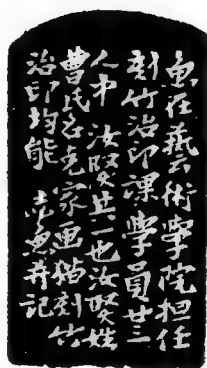 魚在藝術學院担任
刻竹治印課學員廿三
人中汝賢其一也汝賢姓
曹氏名克家画橅刻竹
治印均能 壺魚并記